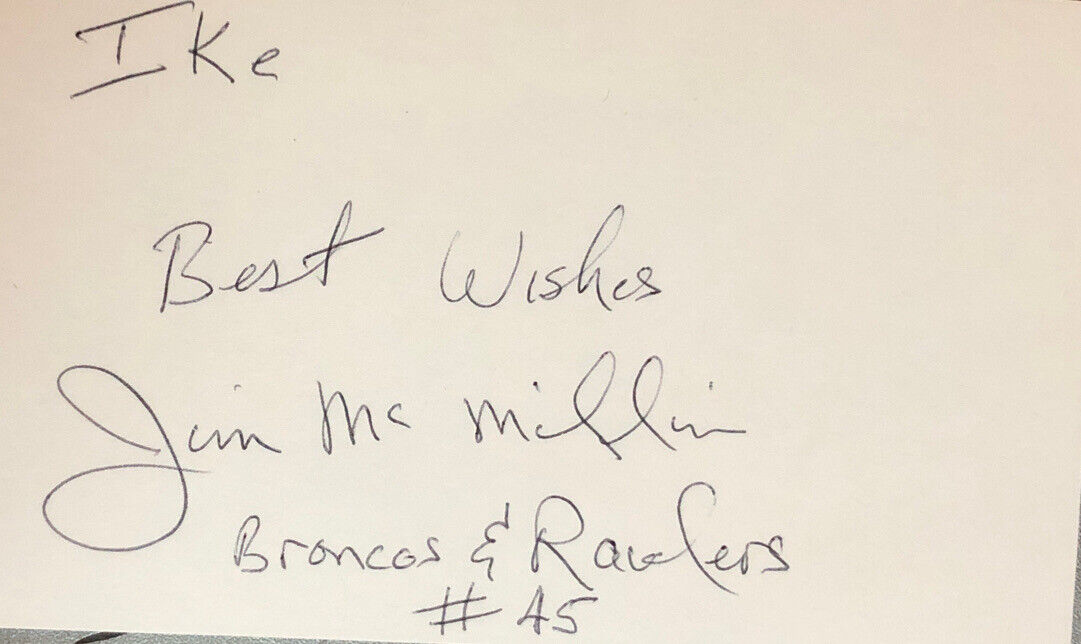 Ike
Best Wishes
Jim McMillin
Broncos & Raiders
#45